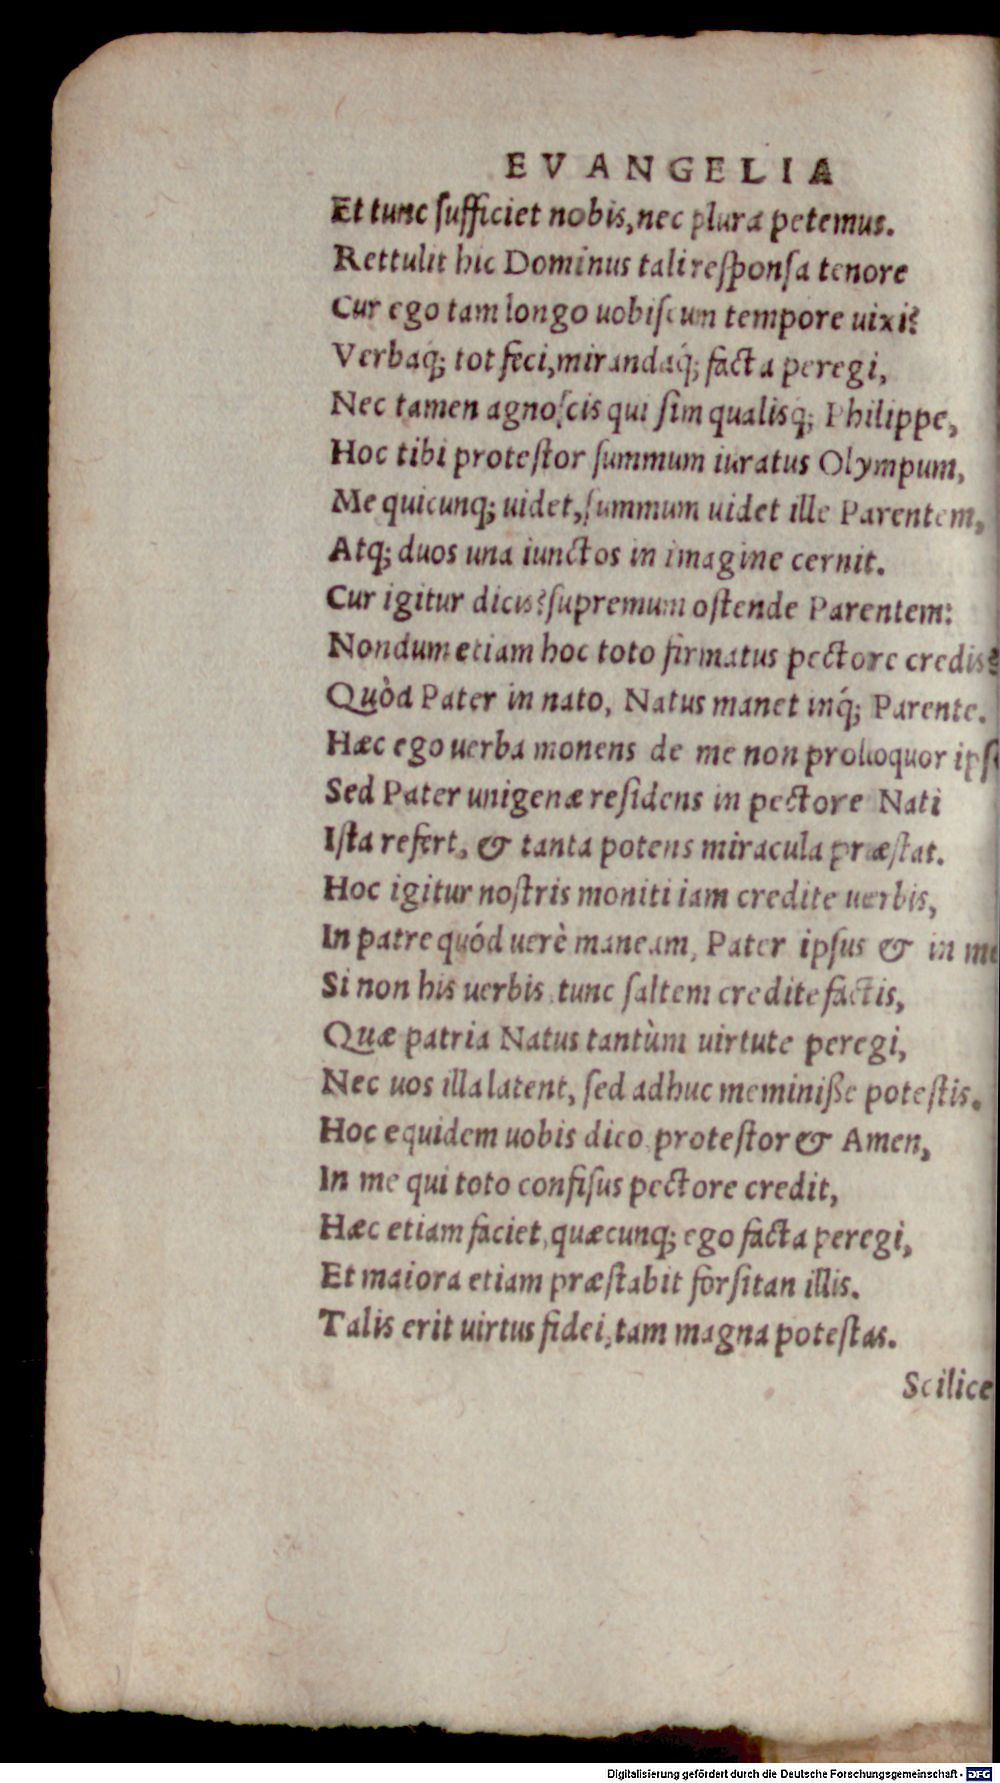 EVANGELIA
Et tunc ſufficiet nobis, nec plura petemus.
Rettulit hic Dominus tali reſponſa tenore
Cur ego tam longo uobiſcum tempore uixi?
Verbaq; tot feci, mirandaq́; facta peregi,
Nec tamen agnoſcis qui ſim qualisq; Philippe,
Hoc tibi proteſtor ſummum iuratus Olympum,
Me quicunq; uidet, ſummum uidet ille Parentem,
Atq; duos una iunctos in imagine cernit.
Cur igitur dicis? ſupremum oſtende Parentem:
Nondum etiam hoc toto firmatus pectore credis?
Quòd Pater in nato, Natus manet inq́; Parente.
Hæc ego uerba monens de me non proloquor ipſ
Sed Pater unigenæ reſidens in pectore Nati
Iſta refert, & tanta potens miracula præſtat.
Hoc igitur noſtris moniti iam credite uerbis,
In patre quód uerè maneam, Pater ipſus & in me
Si non his uerbis, tunc ſaltem credite factis,
Quæ patria Natus tantùm uirtute peregi,
Nec uos illa latent, ſed adhuc meminiſſe poteſtis.
Hoc equidem uobis dico, proteſtor & Amen,
In me qui toto confiſus pectore credit,
Hæc etiam faciet, quæcunq; ego facta peregi,
Et maiora etiam præſtabit forſitan illis.
Talis erit uirtus fidei, tam magna poteſtas.
Scilice
Digitalisierung gefördert durch die Deutsche Forschungsgemeinschaft - DFG